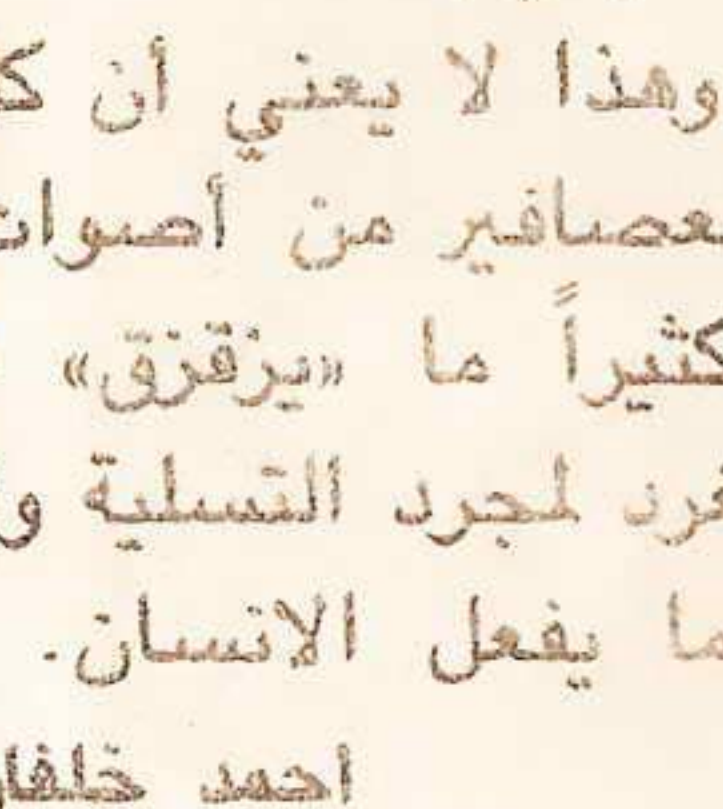 وهذا لا يعني أن ك
لعصافير من أصوات
كثيراً ما «يزقزق»
لمجرد التسلية و
ما يفعل الانسان.
احمد خلفا